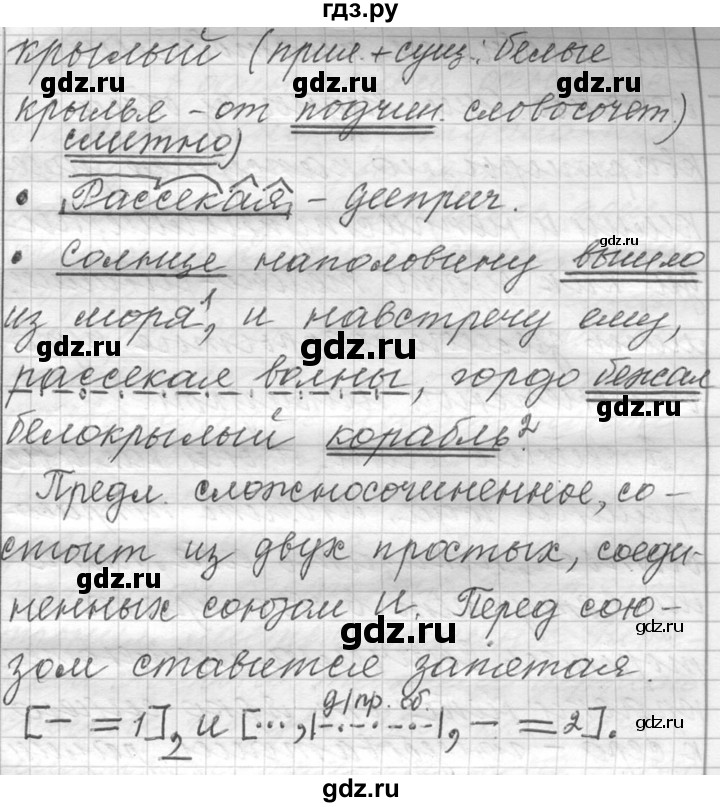 гдз.ру
крылый (прил.+сущ.: белые
gdz.ru gdz.ru
крылья - от подчин. словосочет.)
слитно)
gdz.ru gdz.ru
• Рассекая - дееприч.
gdz.ru
• Солнце наполовину вышло
из моря¹, и навстречу ему,
gdz.ru gdz.ru
рассекая волны, гордо бежал
gdz.ru
белокрылый корабль².
Предл. сложносочиненное, со-
стоит из двух простых, соеди-
gdz.ru
ненных союзом И. Перед сою-
gdz.ru gdz.ru
зом ставится запятая.
д/пр. сб.
[— = 1], и [..., |-.-.-.-|, — = 2].
gdz.ru
gdz.ru gdz.ru